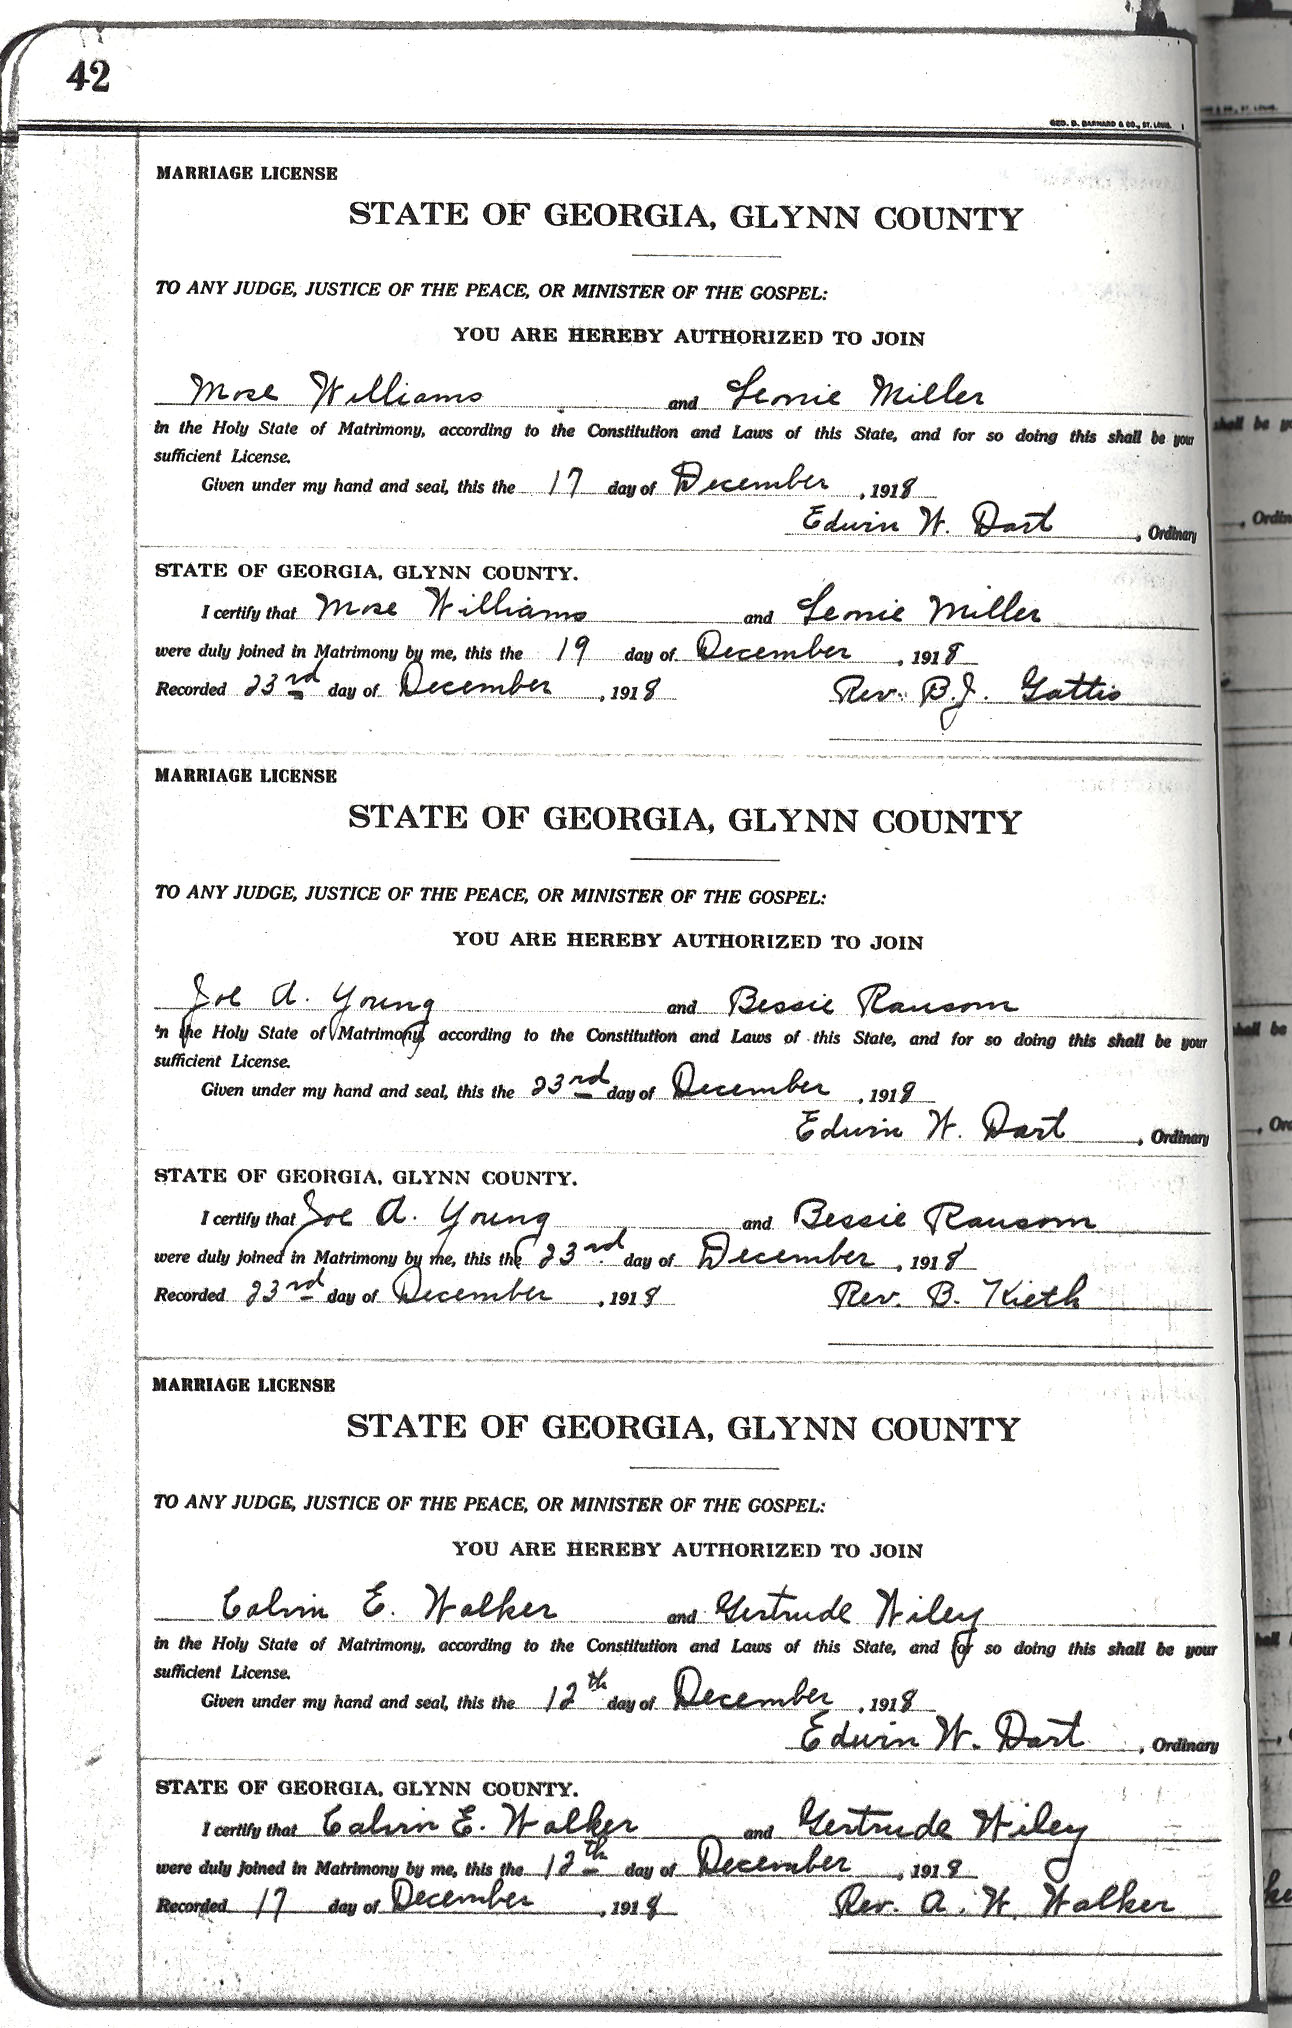 42
GEO. D. BARNARD & CO., ST. LOUIS.
MARRIAGE LICENSE
STATE OF GEORGIA, GLYNN COUNTY
TO ANY JUDGE, JUSTICE OF THE PEACE, OR MINISTER OF THE GOSPEL:
YOU ARE HEREBY AUTHORIZED TO JOIN
Mose Williams and Leonie Miller
in the Holy State of Matrimony, according to the Constitution and Laws of this State, and for so doing this shall be your
sufficient License.
Given under my hand and seal, this the 17 day of December, 1918
Edwin W. Dart, Ordinary
STATE OF GEORGIA, GLYNN COUNTY.
I certify that Mose Williams and Leonie Miller
were duly joined in Matrimony by me, this the 19 day of December, 1918
Recorded 23rd day of December, 1918 Rev. B.J. Gattis
MARRIAGE LICENSE
STATE OF GEORGIA, GLYNN COUNTY
TO ANY JUDGE, JUSTICE OF THE PEACE, OR MINISTER OF THE GOSPEL:
YOU ARE HEREBY AUTHORIZED TO JOIN
Joe A. Young and Bessie Ransom
in the Holy State of Matrimony, according to the Constitution and Laws of this State, and for so doing this shall be your
sufficient License.
Given under my hand and seal, this the 23rd day of December, 1918
Edwin W. Dart, Ordinary
STATE OF GEORGIA, GLYNN COUNTY.
I certify that Joe A. Young and Bessie Ransom
were duly joined in Matrimony by me, this the 23rd day of December, 1918
Recorded 23rd day of December, 1918 Rev. B. Kieth
MARRIAGE LICENSE
STATE OF GEORGIA, GLYNN COUNTY
TO ANY JUDGE, JUSTICE OF THE PEACE, OR MINISTER OF THE GOSPEL:
YOU ARE HEREBY AUTHORIZED TO JOIN
Calvin E. Walker and Gertrude Wiley
in the Holy State of Matrimony, according to the Constitution and Laws of this State, and for so doing this shall be your
sufficient License.
Given under my hand and seal, this the 12th day of December, 1918
Edwin W. Dart, Ordinary
STATE OF GEORGIA, GLYNN COUNTY.
I certify that Calvin E. Walker and Gertrude Wiley
were duly joined in Matrimony by me, this the 12th day of December, 1918
Recorded 17 day of December, 1918 Rev. A. W. Walker